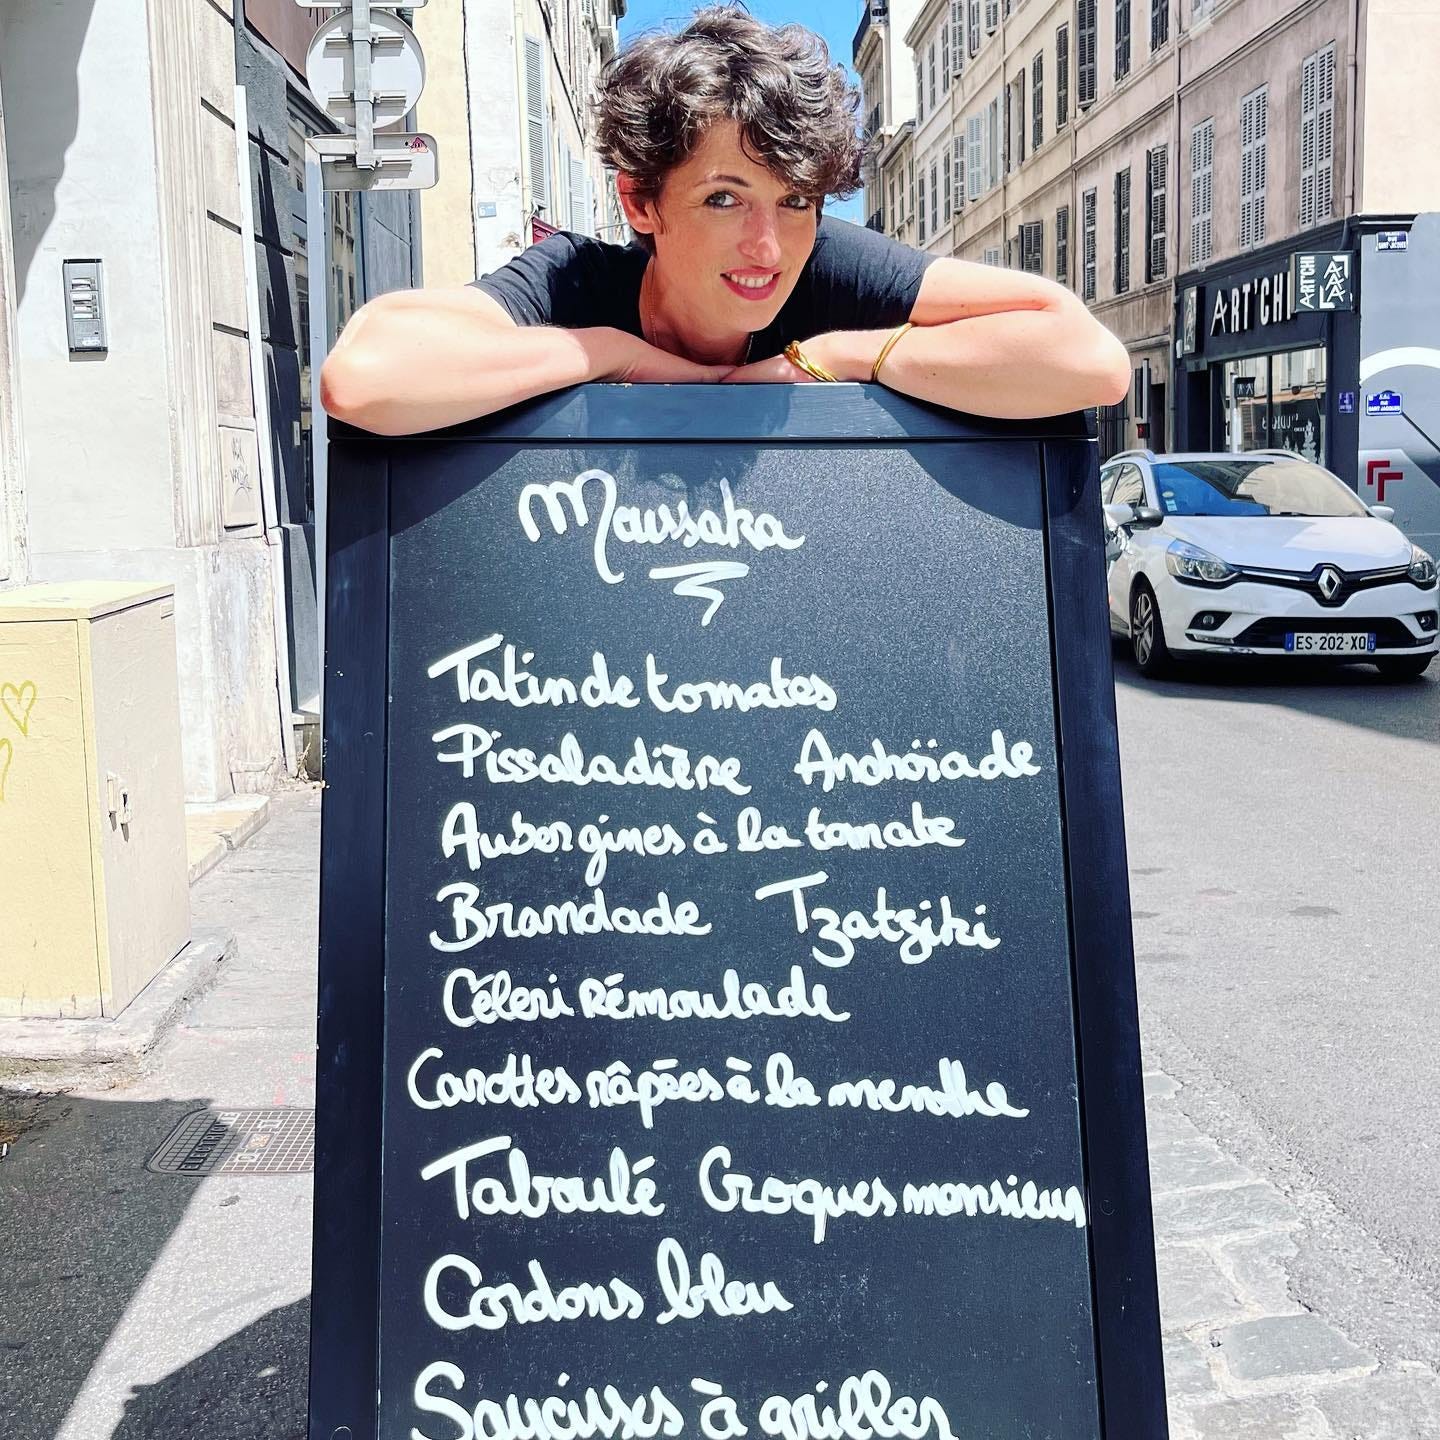 Moussaka
Tatin de tomates
Pissaladière Anchoïade
Aubergines à la tomate
Brandade Tzatziki
Céleri rémoulade
Carottes râpées à la menthe
Taboulé Croques monsieur
Cordons bleu
Saucisses à griller
ART'CHI
ART'CHI
ES-202-XQ
RUE
SAINT JACQUES